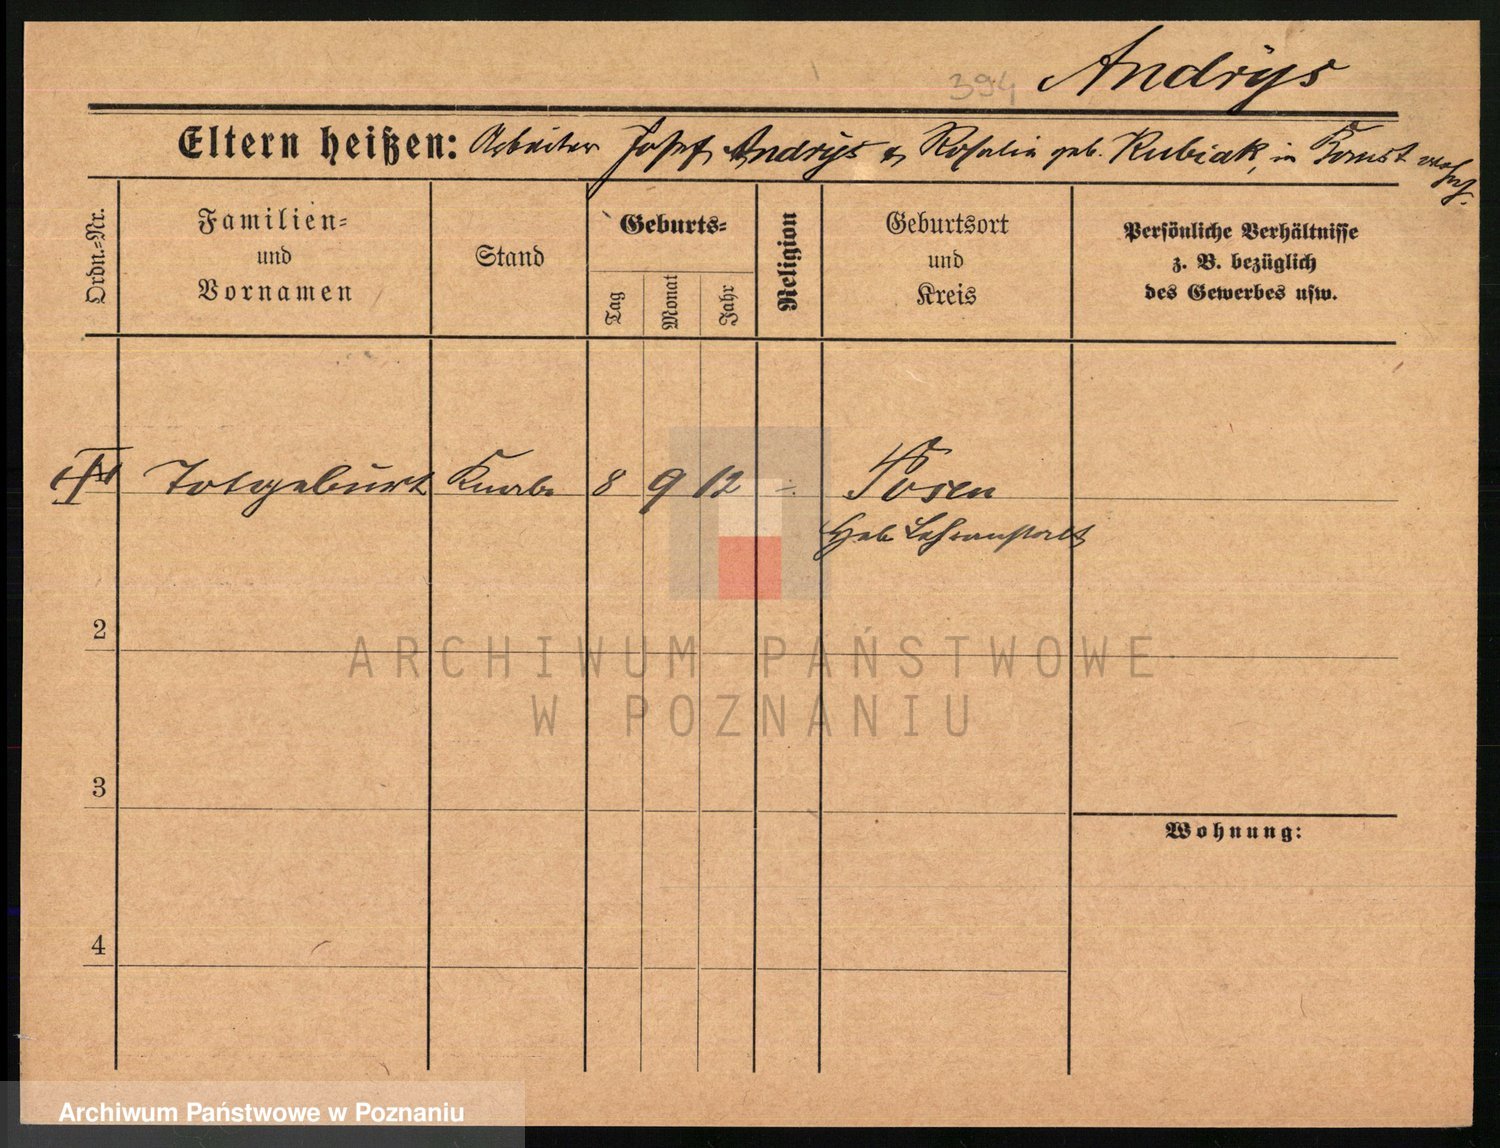 394 Andrÿs
Eltern heißen: Arbeiter Josef Andrÿs u. Rosalie geb. Kubiak, in Bomst wohnh.
Ordn.-Nr.
Familien-
und
Vornamen
Stand
Geburts-
Tag
Monat
Jahr
Religion
Geburtsort
und
Kreis
Persönliche Verhältnisse
z. B. bezüglich
des Gewerbes usw.
Totgeburt Knabe 8 9 12 -:- Posen
Heb. Lehranstalt
2
ARCHIWUM PAŃSTWOWE
W POZNANIU
3
Wohnung:
4
Archiwum Państwowe w Poznaniu